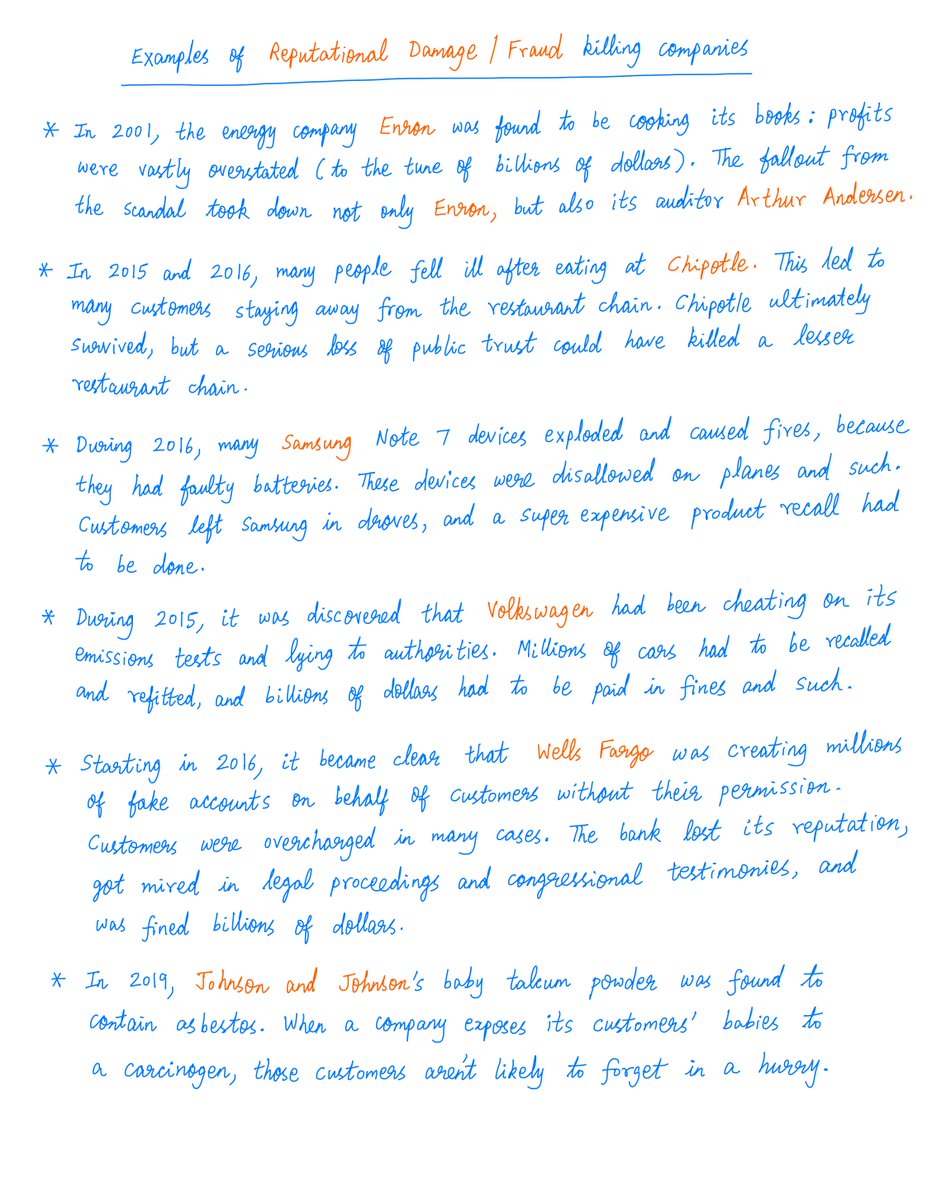 Examples of Reputational Damage / Fraud killing companies
* In 2001, the energy company Enron was found to be cooking its books: profits
were vastly overstated (to the tune of billions of dollars). The fallout from
the scandal took down not only Enron, but also its auditor Arthur Andersen.
* In 2015 and 2016, many people fell ill after eating at Chipotle. This led to
many customers staying away from the restaurant chain. Chipotle ultimately
survived, but a serious loss of public trust could have killed a lesser
restaurant chain.
* During 2016, many Samsung Note 7 devices exploded and caused fires, because
they had faulty batteries. These devices were disallowed on planes and such.
Customers left Samsung in droves, and a super expensive product recall had
to be done.
* During 2015, it was discovered that Volkswagen had been cheating on its
emissions tests and lying to authorities. Millions of cars had to be recalled
and refitted, and billions of dollars had to be paid in fines and such.
* Starting in 2016, it became clear that Wells Fargo was creating millions
of fake accounts on behalf of customers without their permission.
Customers were overcharged in many cases. The bank lost its reputation,
got mired in legal proceedings and congressional testimonies, and
was fined billions of dollars.
* In 2019, Johnson and Johnson's baby talcum powder was found to
contain asbestos. When a company exposes its customers' babies to
a carcinogen, those customers aren't likely to forget in a hurry.